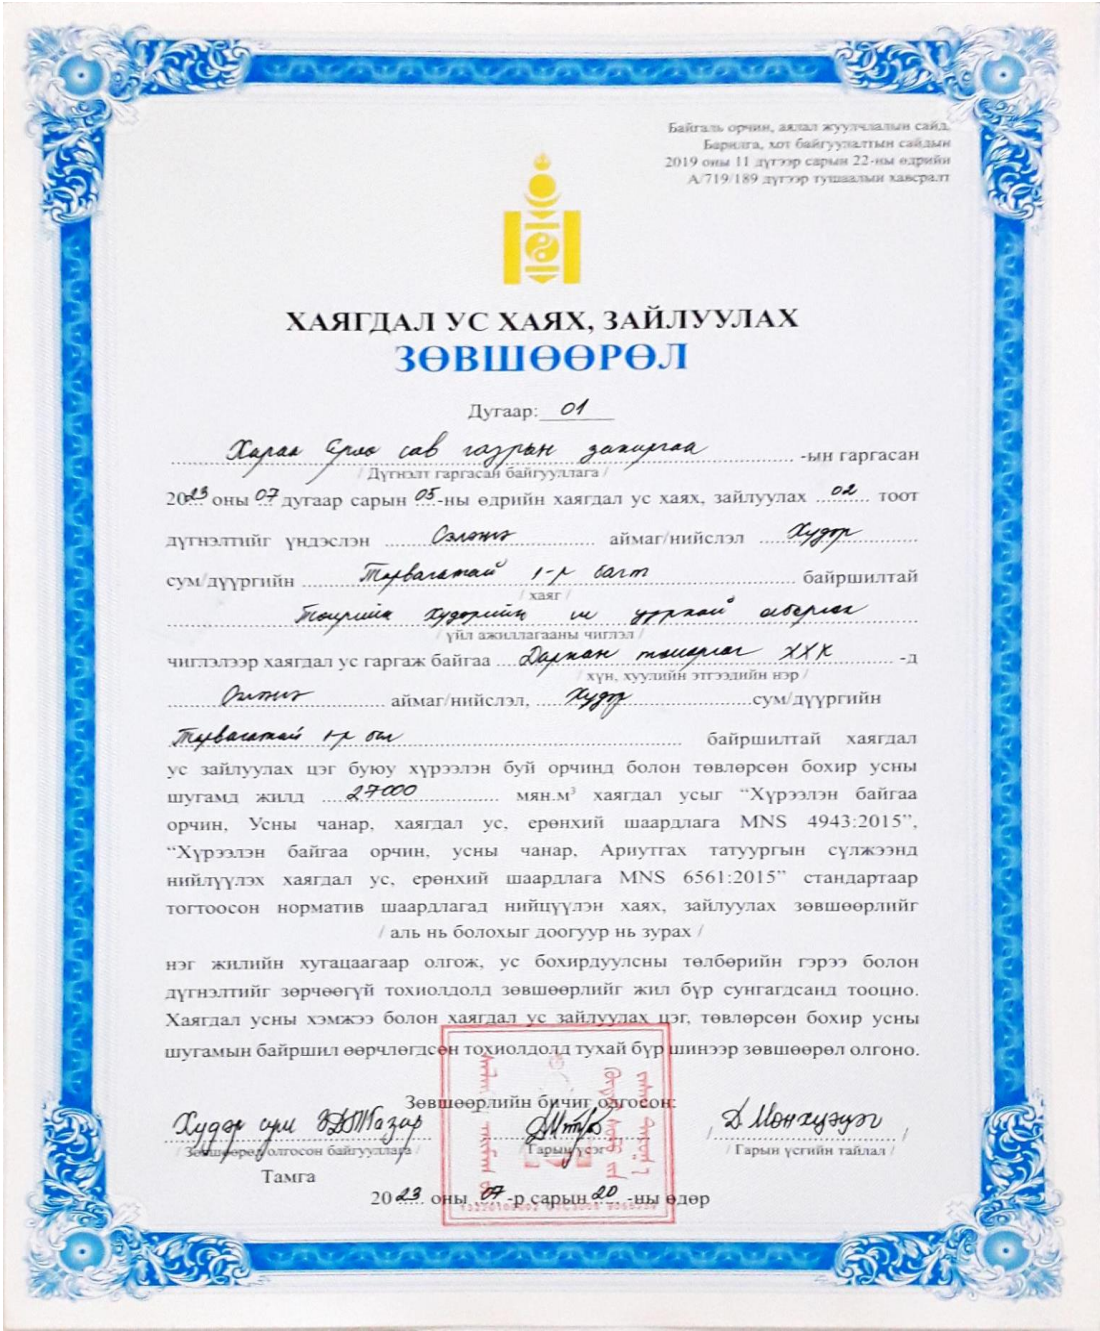 Байгаль орчин, аялал жуулчлалын сайд,
Барилга, хот байгуулалтын сайдын
2019 оны 11 дүгээр сарын 22-ны өдрийн
А/719/189 дүгээр тушаалын хавсралт
ХАЯГДАЛ УС ХАЯХ, ЗАЙЛУУЛАХ
ЗӨВШӨӨРӨЛ
Дугаар: 01
Хараа Ерөө сав газрын захиргаа -ын гаргасан
/ Дүгнэлт гаргасан байгууллага /
2023 оны 07 дугаар сарын 05-ны өдрийн хаягдал ус хаях, зайлуулах 02 тоот
дүгнэлтийг үндэслэн Сэлэнгэ аймаг/нийслэл Хүдэр
сум/дүүргийн Тарвагатай 1-р баг байршилтай
/ хаяг /
Төмрийн хүдрийн ил уурхай олборлох
/ үйл ажиллагааны чиглэл /
чиглэлээр хаягдал ус гаргаж байгаа Дархан төмөрлөг ХХК -д
/ хүн, хуулийн этгээдийн нэр /
Сэлэнгэ аймаг/нийслэл, Хүдэр сум/дүүргийн
Тарвагатай 1-р баг байршилтай хаягдал
ус зайлуулах цэг буюу хүрээлэн буй орчинд болон төвлөрсөн бохир усны
шугамд жилд 27000 мян.м³ хаягдал усыг “Хүрээлэн байгаа
орчин, Усны чанар, хаягдал ус, ерөнхий шаардлага MNS 4943:2015”,
“Хүрээлэн байгаа орчин, усны чанар, Ариутгах татуургын сүлжээнд
нийлүүлэх хаягдал ус, ерөнхий шаардлага MNS 6561:2015” стандартаар
тогтоосон норматив шаардлагад нийцүүлэн хаях, зайлуулах зөвшөөрлийг
/ аль нь болохыг доогуур нь зурах /
нэг жилийн хугацаагаар олгож, ус бохирдуулсны төлбөрийн гэрээ болон
дүгнэлтийг зөрчөөгүй тохиолдолд зөвшөөрлийг жил бүр сунгагдсанд тооцно.
Хаягдал усны хэмжээ болон хаягдал ус зайлуулах цэг, төвлөрсөн бохир усны
шугамын байршил өөрчлөгдсөн тохиолдолд тухай бүр шинээр зөвшөөрөл олгоно.
Зөвшөөрлийн бичиг олгосон:
Хүдэр сум ЗДТГазар / Д.Мөнхцэцэг /
/ Зөвшөөрөл олгосон байгууллага / / Гарын үсэг / / Гарын үсгийн тайлал /
Тамга
2023 оны 07-р сарын 20 -ны өдөр